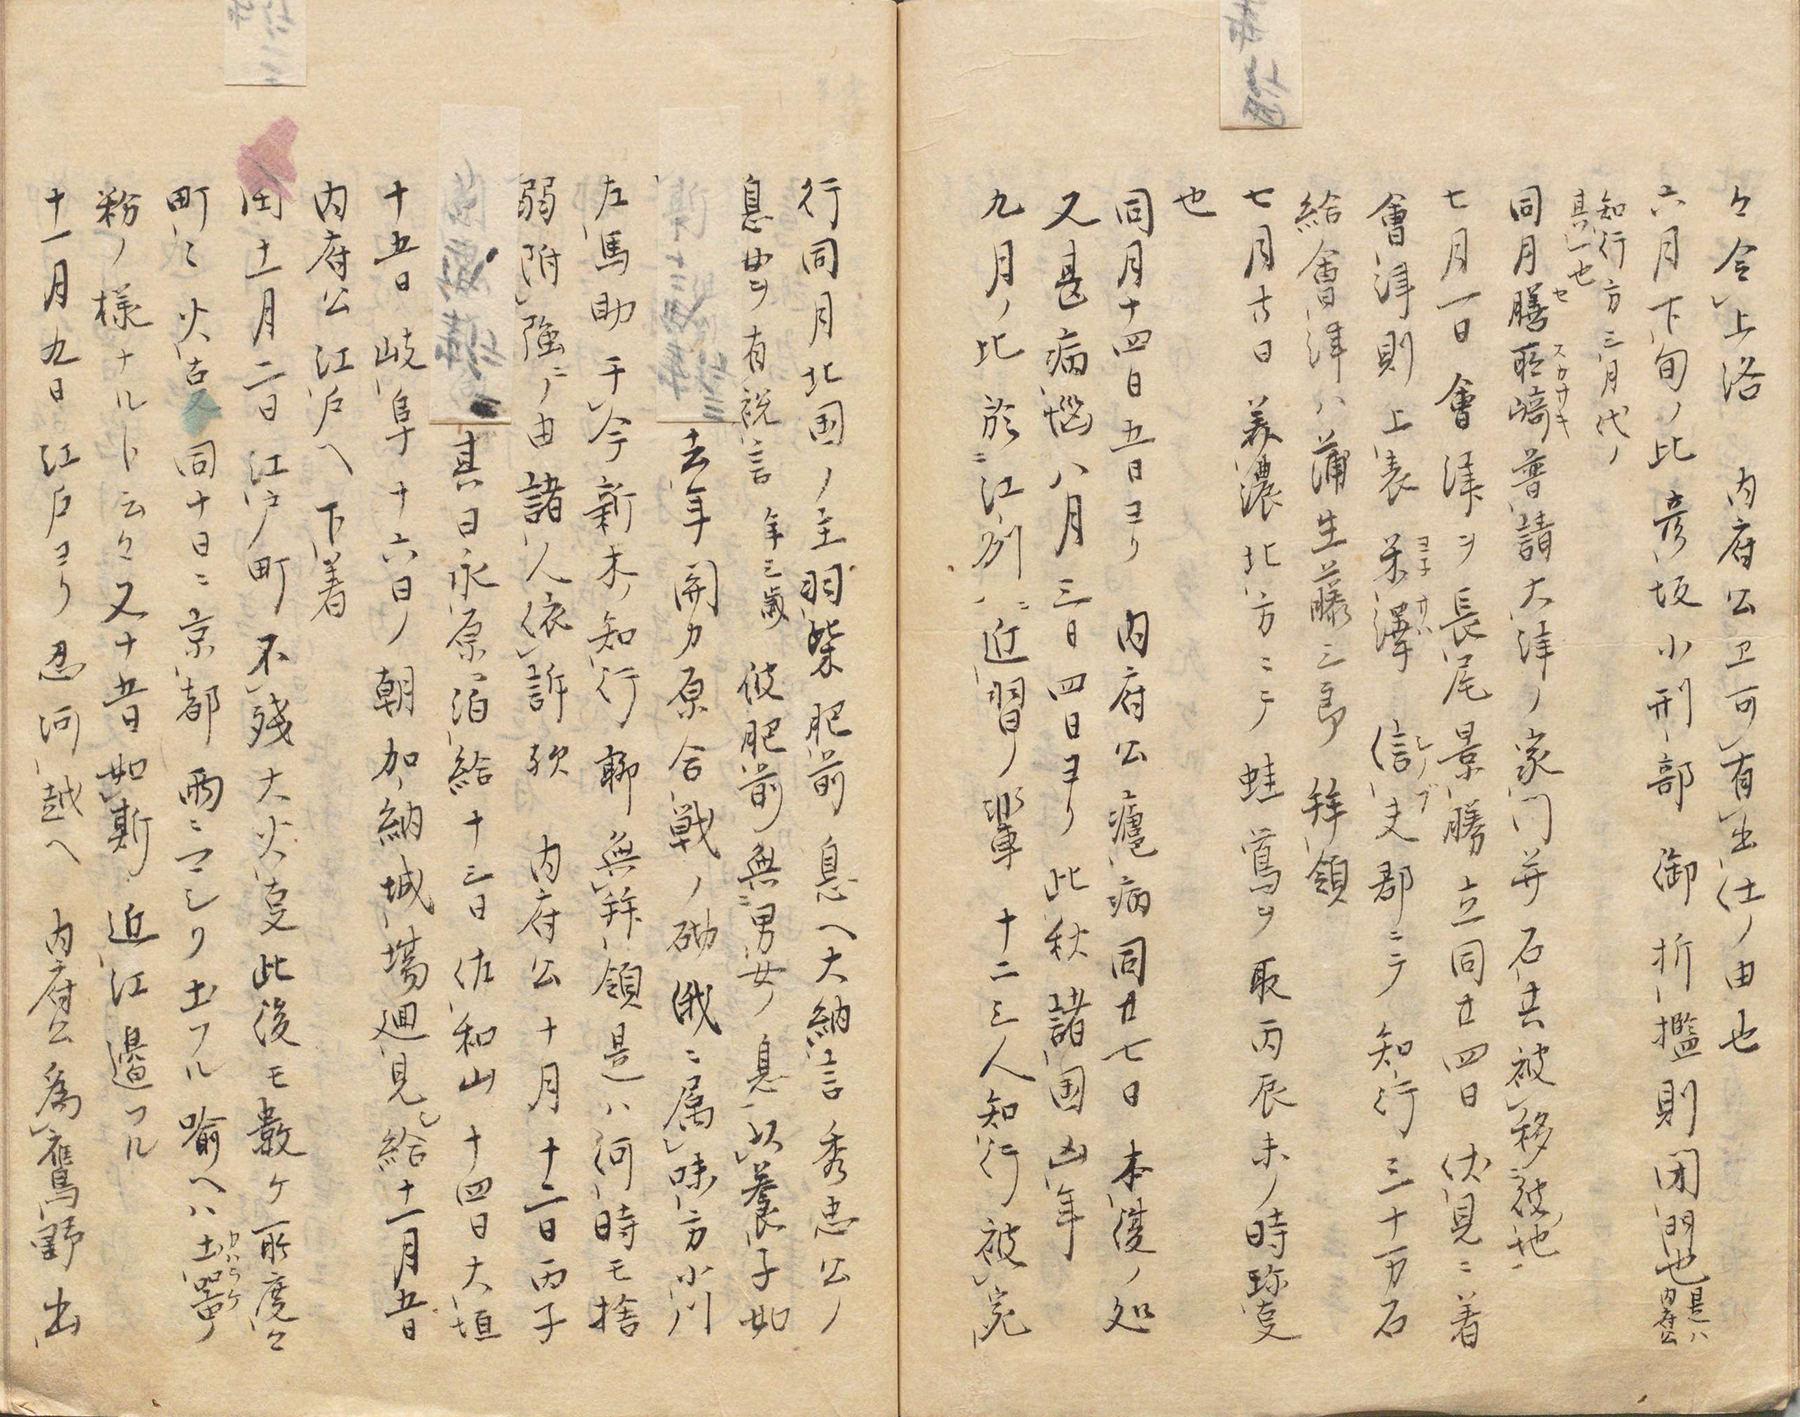 々令上洛 内府公ヱ可有出仕ノ由也
六月下旬ノ比彦坂小刑部御折檻則閉門也是ハ内府公
知行方三月代ノ
其一也
同月膳所崎普請大津ノ家門并石共被移彼地
セ スカサキ
七月一日會津ヲ長尾景勝立同廿四日伏見ニ着
會津則上表米澤信夫郡ニテ知行三十万石
ヨネサハ シノブ
給會津ハ蒲生藤三郎拝領
七月廿日美濃北方ニテ蛙鳶ヲ取丙辰未ノ時珍変
也
同月十四日五日ヨリ 内府公瘧病同廿七日本復ノ処
又甚病悩八月三日四日ヨリ此秋諸国凶年
九月ノ比於江州ニ近習ノ輩十二三人知行被宛
行同月北国ノ主羽柴肥前息ヘ大納言秀忠公ノ
息女ヲ有祝言 年三歳 彼肥前無男女ノ息以養子如
去年関カ原合戦ノ砌俄ニ属味方小川
左馬助于今新木ノ知行聊無拝領是ハ何時モ捨
弱附強ニノ由諸人依訴歟 内府公十月十二日丙子
其日永原泊給十三日佐和山十四日大垣
十五日岐阜十六日ノ朝加納城場廻見シ給十一月五日
内府公江戸ヘ下着
十一月二日江戸町不残大火変此後モ数ケ所度々
町々火吉又同十日ニ京都雨ニマシリ土フル喩ヘハ土器ノ
カハラケ
粉ノ様ナルト云々又十五日如斯近江邊フル
十一月九日江戸ヨリ忍河越ヘ 内府公為鷹野出